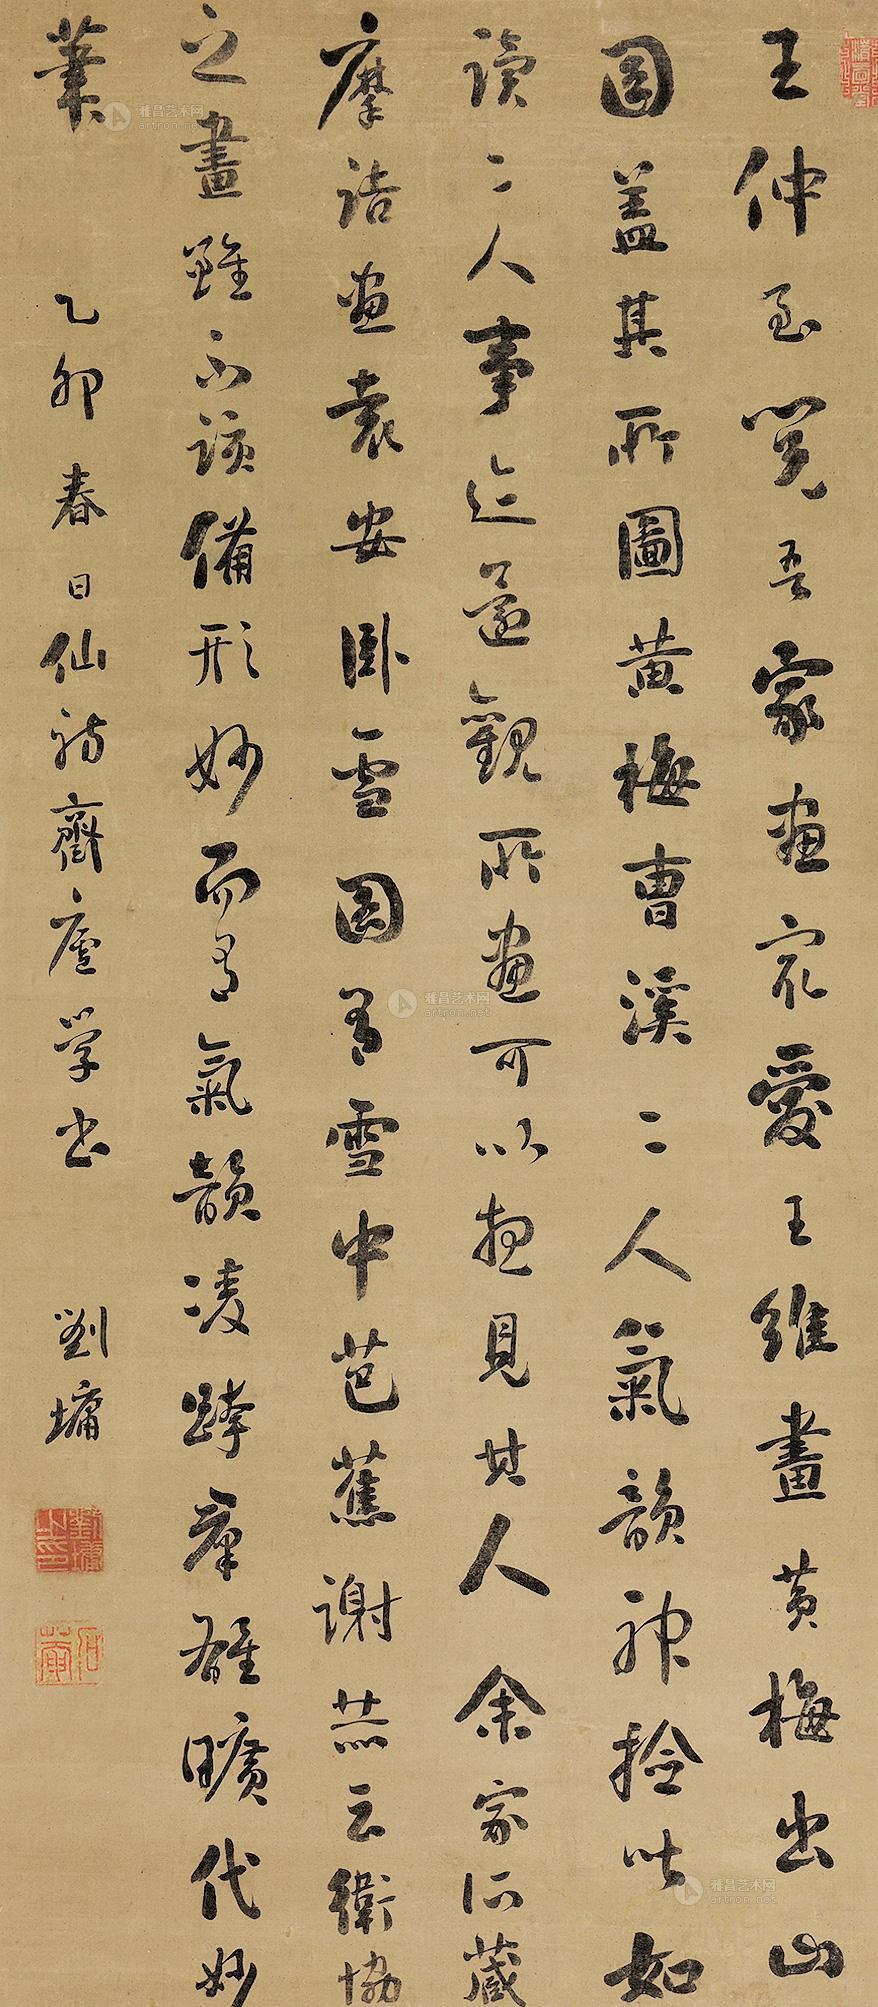 王仲至閱吾家畫最愛王維畫黃梅出山
圖蓋其所圖黃梅曹溪二人氣韻神撿皆如
讀二人事迹還觀所畫可以想見其人余家所藏
摩詰畫袁安臥雪圖有雪中芭蕉謝赫云衛協
之畫雖不該備形妙而有氣韻凌跨群雄曠代妙
筆
乙卯春日仙舫齋廬學書
劉墉
劉墉之印
石菴
雅昌艺术网
artron.net
雅昌艺术网
artron.net
雅昌艺术网
artron.net